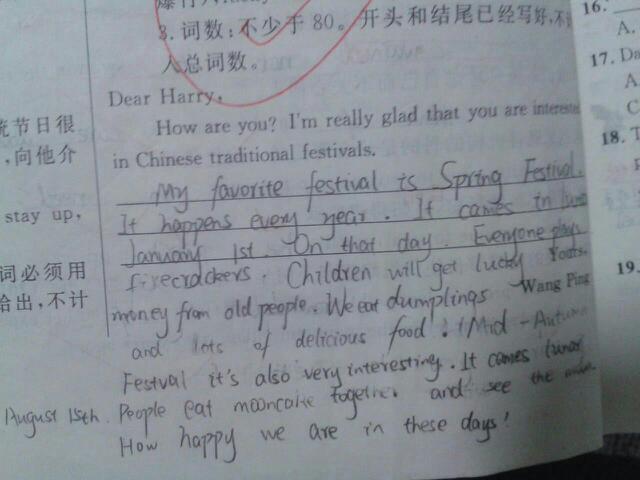 3. 词数：不少于 80。开头和结尾已经写好,不
入总词数。
Dear Harry,
How are you? I'm really glad that you are interested
in Chinese traditional festivals.
My favorite festival is Spring Festival.
It happens every year. It comes in
January 1st. On that day. Everyone plays
firecrackers. Children will get lucky
Yours,
money from old people. We eat dumplings
Wang Ping
and lots of delicious food! Mid-Autumn
Festval it's also very interesting. It comes lunar
August 15th. People eat mooncake together and see the
How happy we are in these days!
统节日很
,向他介
stay up,
词必须用
给出，不计
16.
A.
17. Da
A
C
18. T
19.